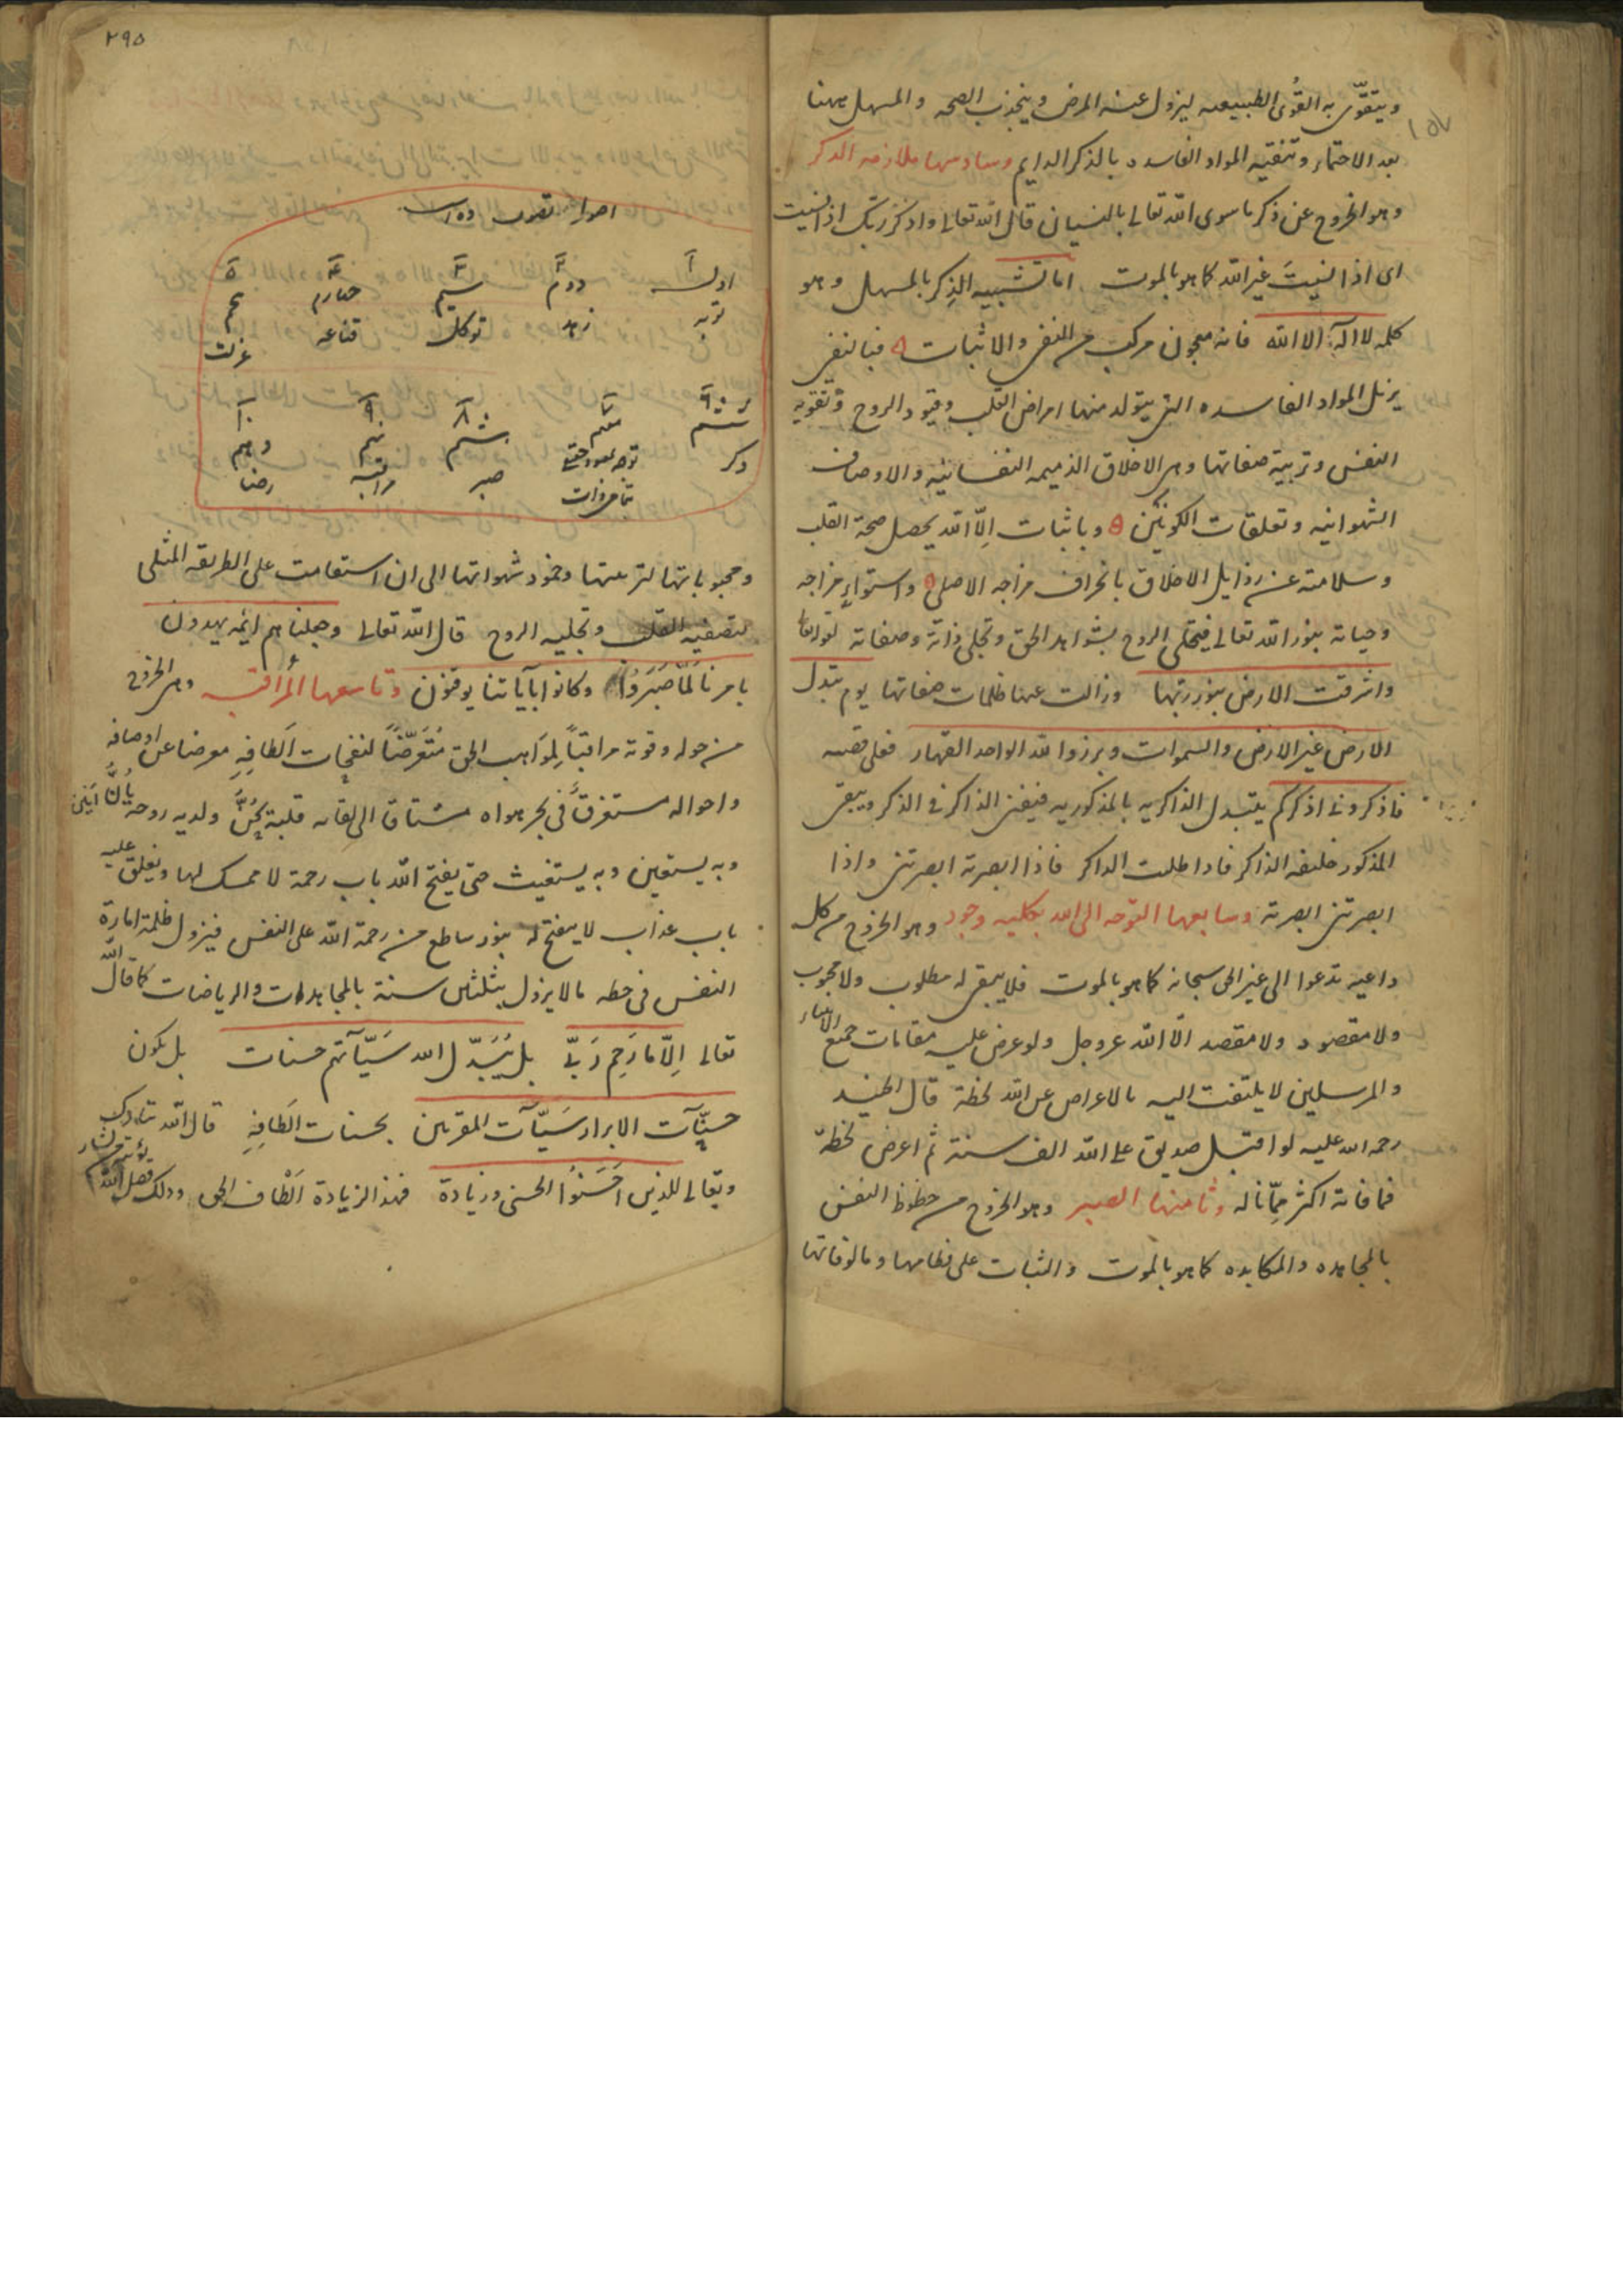 ويتقوّى به القُوى الطبيعيه ليزول عنه المرض وينجذب الصحه والمسهل ههنا
بعد الاحتماء وتنقيه المواد الفاسده بالذكر الدايم وسادسها ملازمه الذكر
وهو الخروج عن ذكر ما سوى الله تعالى بالنسيان قال الله تعالى واذكر ربك اذا نسيت
اى اذا نسيتَ غير الله كما هو بالموت اما تشبيه الذِكر بالمسهل وهو
كلمه لا اله الا الله فانه معجون مركب من النفى والاثبات فبالنفى
يزيل المواد الفاسده التى يتولد منها امراض القلب وقيود الروح وتقويه
النفس وتربية صفاتها وهى الاخلاق الذميمه النفسانيه والاوصاف
الشهوانيه وتعلقات الكونَيْن وباثبات اِلّا الله يحصل صحة القلب
وسلامته عن رذايل الاخلاق بانحراف مزاجه الاصلى واستواءِ مزاجه
وحياته بنور الله تعالى فيتحلى الروح بشواهد الحق وتجلى ذاته وصفاته لقوله تعالى
واشرقت الارض بنور ربّها وزالت عنها ظلمات صفاتها يوم تبدل
الارض غير الارض والسموات وبرزوا لله الواحد القهار فعلى قضيه
فاذكرونى اذكركم يتبدل الذاكريه بالمذكوريه فيفنى الذاكر فى الذكر ويبقى
المذكور خليفه الذاكر فاذا طلبت الذاكر فاذا ابصرته ابصرتنى واذا
ابصرتنى ابصرته وسابعها التوجه الى الله بكليه وجود وهو الخروج من كل
داعيه تدعوا الى غير الحق سبحانه كما هو بالموت فلا يبقى له مطلوب ولا محبوب
ولا مقصود ولا مقصد الّا الله عزوجل ولو عرض عليه مقامات جميع الانبياء
والمرسلين لا يلتفت اليه بالاعراض عن الله لحظة قال الجنيد
رحمه الله عليه لو اقبل صديق على الله الف سنة ثم اعرض لحظةً
فما فاته اكثر مِمّا ناله وثامنها الصبر وهو الخروج من حظوظ النفس
بالمجاهده والمكابده كما هو بالموت والثبات على فطامها ومالوفاتها
٢٩٥
اصول تصوف ده است
١ ٢ ٣ ٤ ٥
اول دوم سيم چهارم پنجم
توبه زهد توكل قناعه عزلت
٦ ٧ ٨ ٩ ١٠
ششم هفتم هشتم نهم دهم
ذكر توجه صبر مراقبه رضا
ومحبوباتها لتزكيتها وخمود شهواتها الى ان استقامت على الطريقه المثلى
لتصفيه القلب وتجليه الروح قال الله تعالى وجعلناهم ائمه يهدون
بامرنا لَمّا صَبَرُوا وكانوا بآياتنا يوقنون وتاسعها المراقبه وهى الخروج
من حوله وقوته مراقباً لِموَاهب الحق مُتَعَرِّضاً لنفحات الَطافِهِ معرضا عن اوصافه
واحواله مستغرقاً فى بحر هواه مشتاقا الى لقائه قلبه يَحِنُّ ولديه روحه يأنّ
وبه يستعين وبه يستغيث حتى يفتح الله باب رحمة لا ممسك لها ويغلق عليه
باب عذاب لا يفتح له بنور ساطع من رحمة الله على النفس فيزول ظلمة امارة
النفس فى لحظه ما لا يزول بثلثين سنة بالمجاهدات والرياضات كما قال الله
تعالى اِلّا ما رَحِم رَبّى بل يُبَدّل الله سَيّآتهم حسنات بل يكون
حسنآت الابرار سَيّآت المقربين بحسنات الَطافِهِ قال الله تبارك
وتعالى للذين احْسَنُوا الحسنى وزيادة فهذ الزيادة اَلْطاف الحق وذلك فضل الله يؤتيه من يشاء